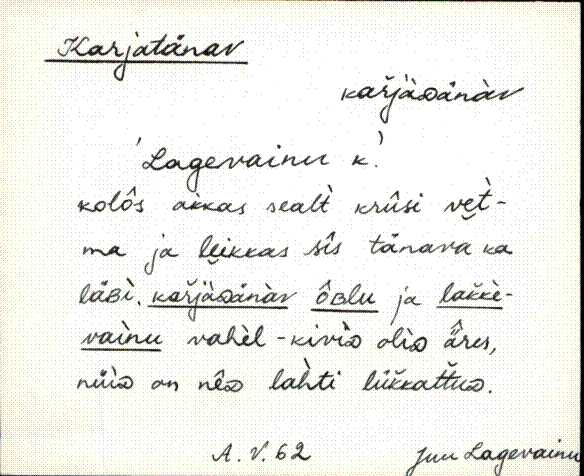 Karjatänav
kaŕjàᴅänàv
'Lagevainu k.'
kolôs akkas sealt̀ krûsi vet̀-
ma ja leikkas sîs tänava ka
läʙì. kaŕjàᴅänàv ôʙlu ja lakkè-
vaìnu vahèl - kiviᴅ̀ oliᴅ̀ äres,
nüiᴅ on nêᴅ lahti lükkattuᴅ.
A. V. 62
Juu Lagevainu